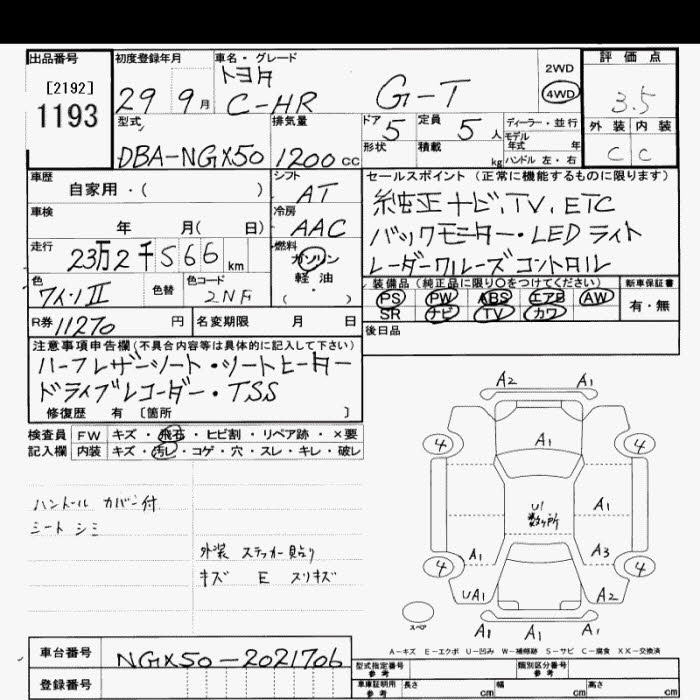 出品番号 初度登録年月 車名・グレード 評価点
[2192] トヨタ 2WD
1193 29 9月 C-HR G-T 4WD 3.5
型式 排気量 ドア 定員 ディーラー・並行 外装 内装
5 5人 モデル年式 年
DBA-NGX50 1200cc 形状 積載 kg ハンドル 左・右 C C
車歴 シフト セールスポイント (正常に機能するものに限ります)
自家用・( ) AT 純正ナビ、TV、ETC
車検 冷房
年 月( 日) AAC バックモニター・LEDライト
走行 燃料
23万2千566km ガソリン レーダークルーズコントロール
色 色替 色コード 軽油 装備品 (純正品に限り○をつけてください) 新車保証書
ワインII 2NF ( ・ ) PS PW ABS エアB AW 有・無
SR ナビ TV カワ
R券 11270円 名変期限 月 日 後日品
注意事項申告欄(不具合内容等は具体的に記入して下さい)
ハーフレザーシート・シートヒーター
ドライブレコーダー・TSS
修復歴 有 〔箇所 〕
検査員 FW キズ・飛石・ヒビ割・リペア跡・×要
記入欄 内装 キズ・汚レ・コゲ・穴・スレ・キレ・破レ
ハンドル カバー付
シート シミ
外装 ステッカー貼り
キズ E スリキズ
A2 A1
4 4
A1
U1 A1
数ヶ所
A1 A3
4 4
UA1 A2
スペア A1 A1 A1
A-キズ E-エクボ U-凹み W-補修跡 S-サビ C-腐食 XX-交換済
車台番号 NGX50-2021706
型式指定番号 参考 類別区分番号 参考
登録番号 車庫証明用 参考 長さ cm 幅 cm 高さ cm